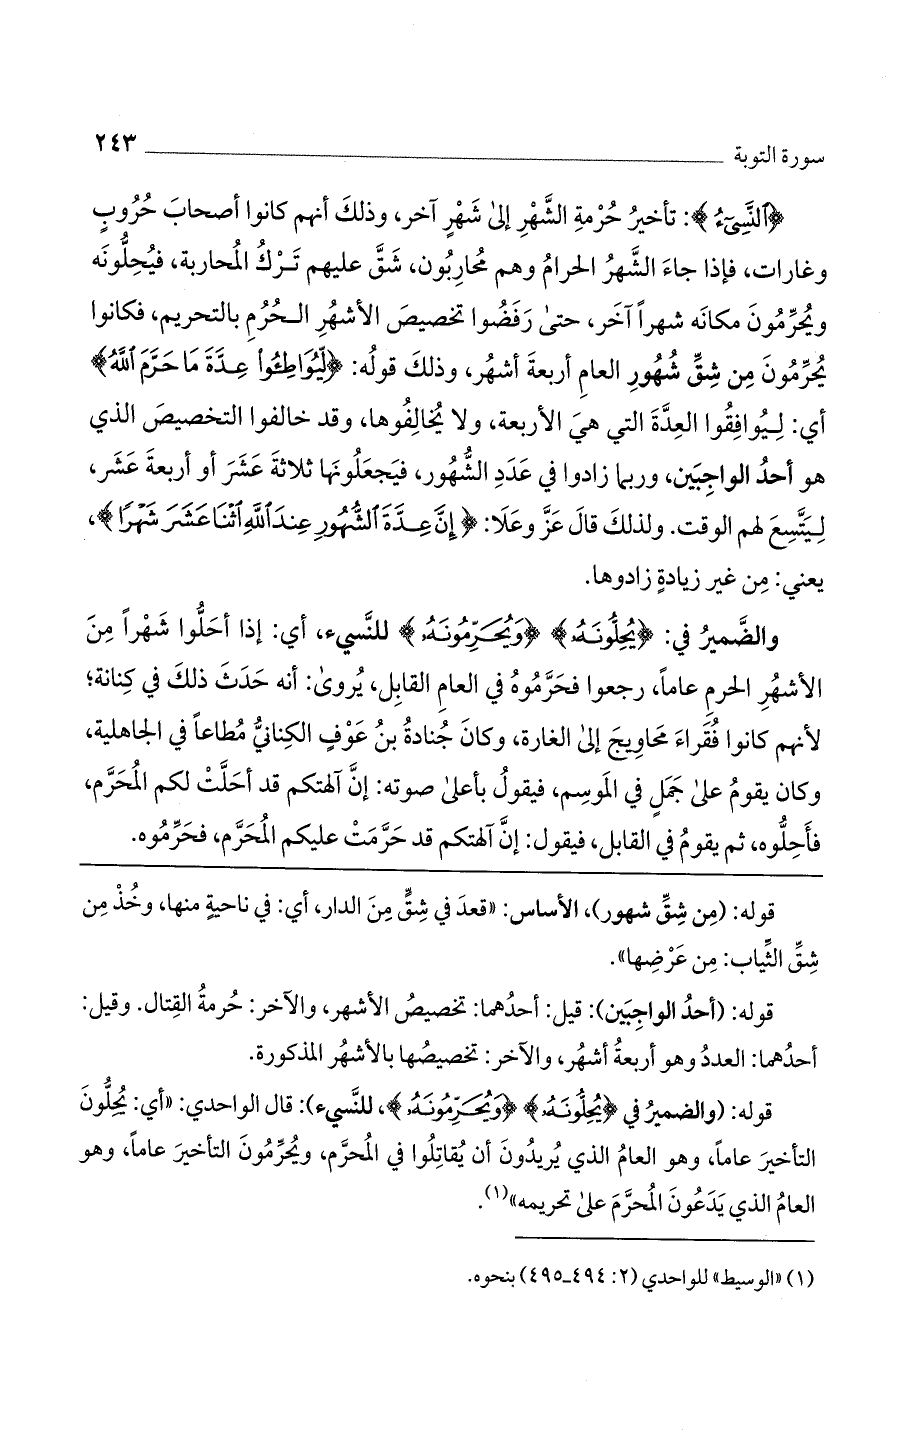 سورة التوبة ٢٤٣
﴿ٱلنَّسِىٓءُ﴾: تأخيرُ حُرْمةِ الشَّهْرِ إلىٰ شَهْرٍ آخر، وذلكَ أنهم كانوا أصحابَ حُرُوبٍ
وغارات، فإذا جاءَ الشَّهرُ الحرامُ وهم مُحاربُون، شَقَّ عليهم تَـرْكُ المُحاربة، فيُحِلُّونَه
ويُحرِّمُونَ مكانَه شهراً آخَر، حتىٰ رَفَضُوا تخصيصَ الأشهُرِ الـحُرُمِ بالتحريم، فكانوا
يُحرِّمُونَ مِن شِقِّ شُهُورِ العامِ أربعةَ أشهُر، وذلكَ قولُه: ﴿لِّيُوَاطِـُٔوا۟ عِدَّةَ مَا حَرَّمَ ٱللَّهُ﴾
أي: لِـيُوافِقُوا العِدَّةَ التي هيَ الأربعة، ولا يُخالِفُوها، وقد خالفوا التخصيصَ الذي
هو أحدُ الواجِبَين، وربما زادوا في عَدَدِ الشُّهُور، فيَجعَلُونَها ثلاثةَ عَشَرَ أو أربعةَ عَشَر،
لِـيَتَّسِعَ لهم الوقت. ولذلكَ قالَ عَزَّ وعَلَا: ﴿إِنَّ عِدَّةَ ٱلشُّهُورِ عِندَ ٱللَّهِ ٱثْنَا عَشَرَ شَهْرًا﴾،
يعني: مِن غير زيادةٍ زادوها.
والضَّميرُ في: ﴿يُحِلُّونَهُۥ﴾ ﴿وَيُحَرِّمُونَهُۥ﴾ للنَّسيء، أي: إذا أحَلُّوا شَهْراً مِنَ
الأشهُرِ الحرمِ عاماً، رجعوا فحَرَّمُوهُ في العامِ القابِل، يُروىٰ: أنه حَدَثَ ذلكَ في كِنانة؛
لأنهم كانوا فُقَراءَ مَحاويجَ إلىٰ الغارة، وكانَ جُنادةُ بنُ عَوْفٍ الكِنانيُّ مُطاعاً في الجاهلية،
وكان يقومُ علىٰ جَمَلٍ في المَوسِم، فيقولُ بأعلىٰ صوته: إنَّ آلهتكم قد أحَلَّتْ لكم المُحَرَّم،
فأَحِلُّوه، ثم يقومُ في القابل، فيقول: إنَّ آلهتكم قد حَرَّمَتْ عليكم المُحَرَّم، فحَرِّمُوه.
قوله: (مِن شِقِّ شهور)، الأساس: «قعدَ في شِقٍّ مِنَ الدار، أي: في ناحيةٍ منها، وخُذْ مِن
شِقِّ الثِّياب: مِن عَرْضِها».
قوله: (أحدُ الواجِبَين): قيل: أحدُهما: تخصيصُ الأشهر، والآخر: حُرمةُ القِتال. وقيل:
أحدُهما: العددُ وهو أربعةُ أشهُر، والآخر: تخصيصُها بالأشهُرِ المذكورة.
قوله: (والضميرُ في ﴿يُحِلُّونَهُۥ﴾ ﴿وَيُحَرِّمُونَهُۥ﴾، للنَّسيء): قال الواحدي: «أي: يُحِلُّونَ
التأخيرَ عاماً، وهو العامُ الذي يُريدُونَ أن يُقاتِلُوا في المُحرَّم، ويُحرِّمُونَ التأخيرَ عاماً، وهو
العامُ الذي يَدَعُونَ المُحرَّمَ علىٰ تحريمه»(١).
(١) «الوسيط» للواحدي (٢: ٤٩٤-٤٩٥) بنحوه.